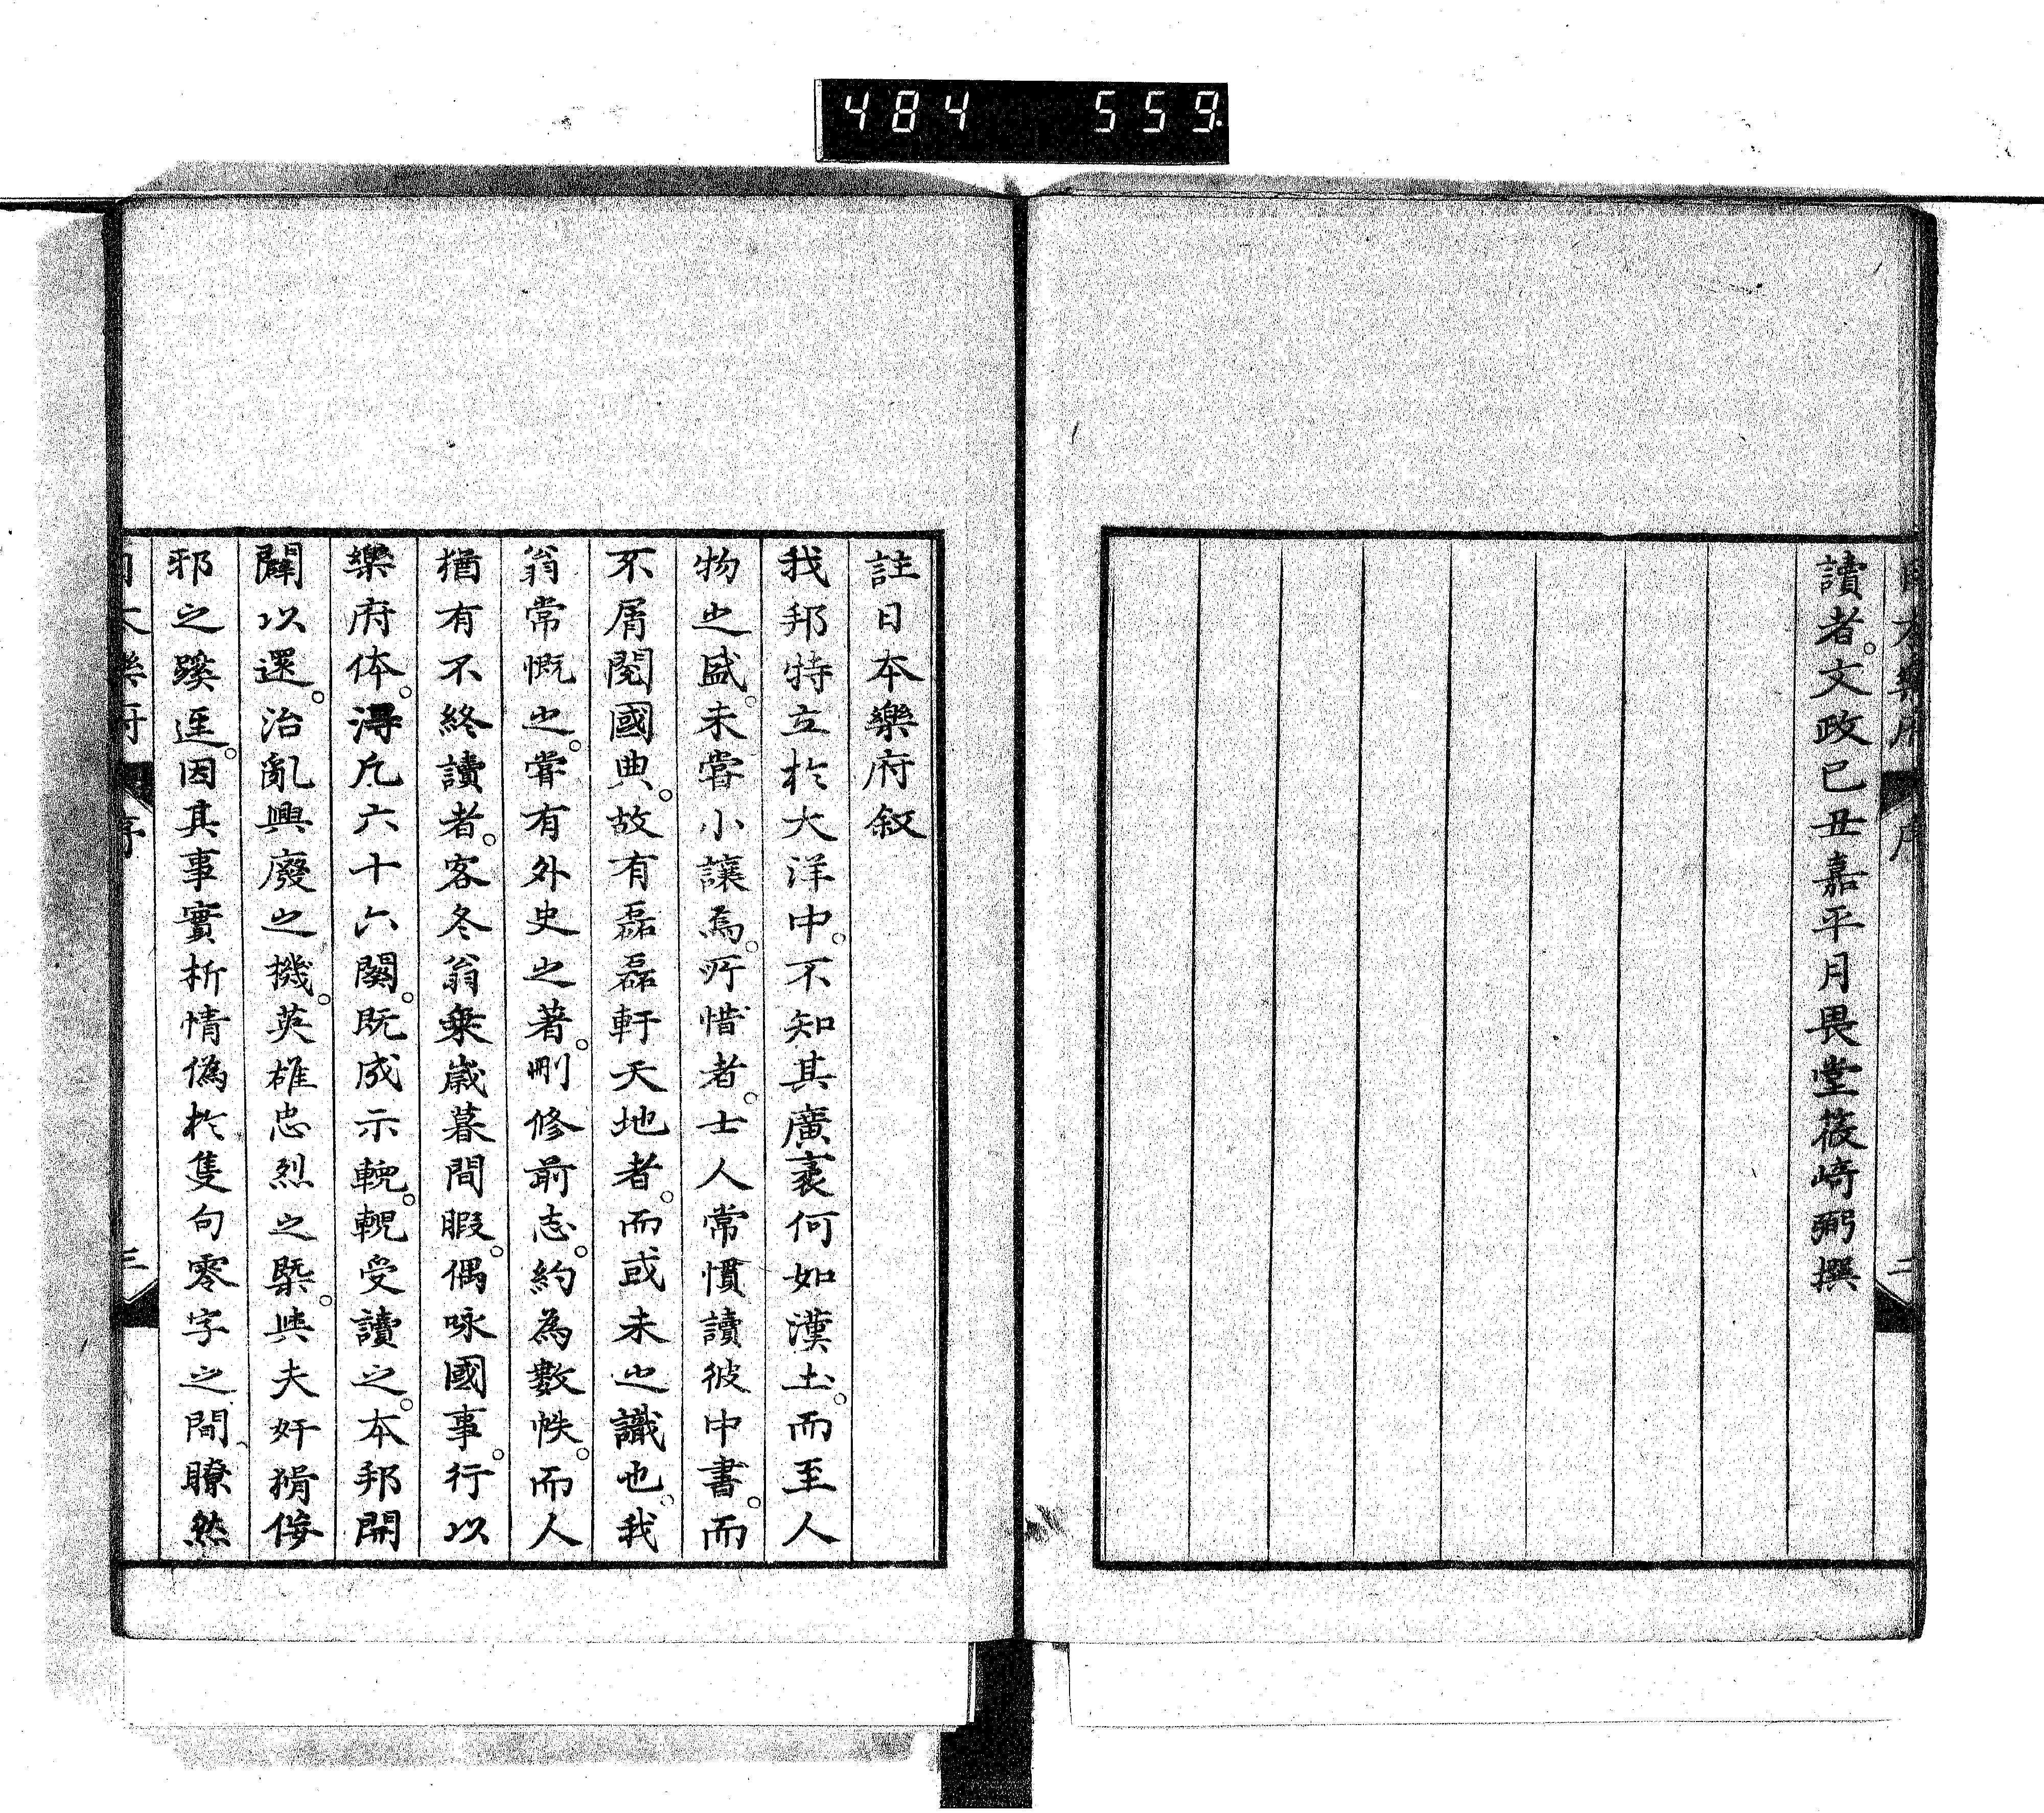 484 559
日本樂府 序 二
讀者。文政己丑嘉平月畏堂筱崎弼撰
註日本樂府叙
我邦特立於大洋中。不知其廣袤何如漢土。而至人
物之盛。未嘗小讓焉。所惜者。士人常慣讀彼中書。而
不屑閱國典。故有磊磊軒天地者。而或未之識也。我
翁常慨之。嘗有外史之著。刪修前志。約為數帙。而人
猶有不終讀者。客冬翁乘歲暮間暇。偶咏國事。行以
樂府体。得凡六十六闋。既成示輗。輗受讀之。本邦開
闢以還。治亂興廢之機。英雄忠烈之槩。與夫奸猾侫
邪之蹊逕。因其事實析情偽於隻句零字之間。瞭然
日本樂府 序 三